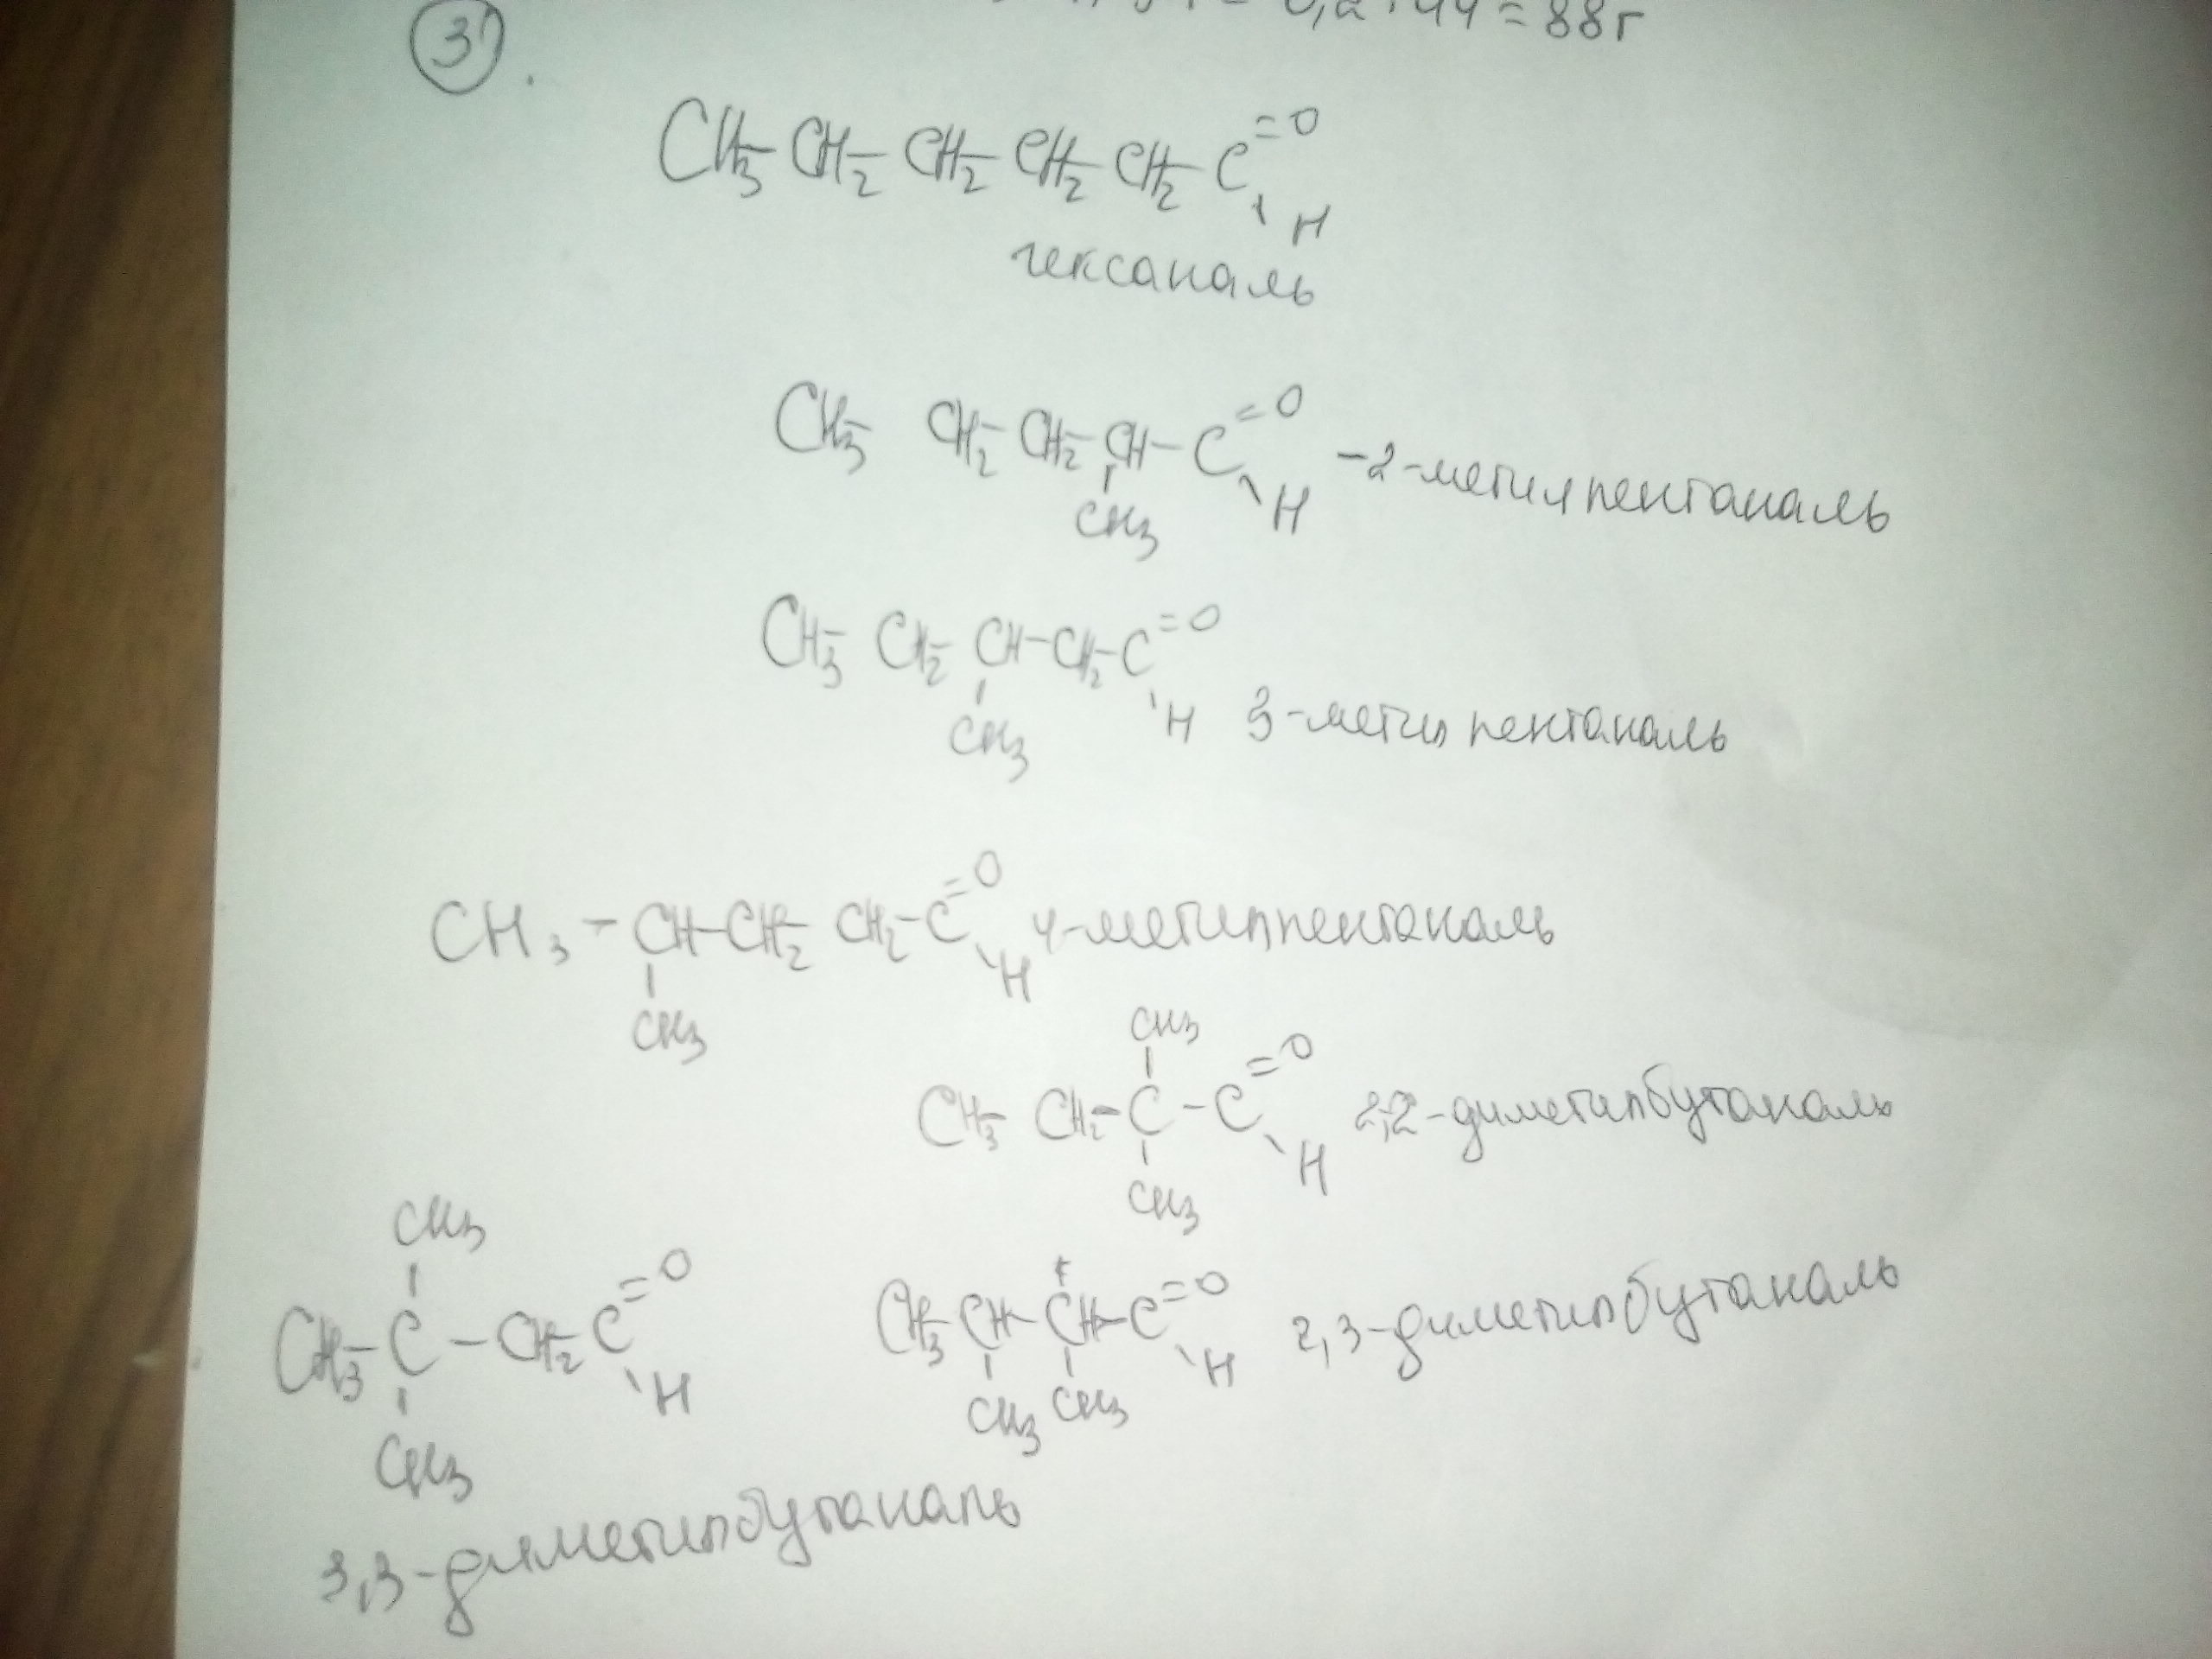 3
0,2·44=88г
CH3-CH2-CH2-CH2-CH2-C=O
H
гексаналь
CH3- CH2-CH2-CH-C=O
CH3 H -2-метилпентаналь
CH3- CH2-CH-CH2-C=O
CH3 H 3-метил пентаналь
CH3-CH-CH2- CH2-C=O
CH3 H 4-метилпентаналь
CH3
CH3- CH2-C-C=O
CH3 H 2,2-диметилбутаналь
CH3
CH3-C-CH2-C=O
CH3 H
3,3-диметилбутаналь
CH3-CH-CH-C=O
CH3 CH3 H 2,3-диметилбутаналь